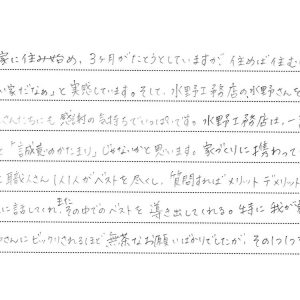 家に住み始め、3ヶ月がたとうとしていますが、住めば住む
い家だなぁ」と実感しています。そして、水野工務店の水野さんを
さんたちにも感謝の気持ちでいっぱいです。水野工務店は、一
と「誠意のかたまり」じゃないかと思います。家づくりに携わって
職人さん1人1人がベストを尽くし、質問すればメリットデメリット
に話してくれ、またその中でのベストを導き出してくれる。特に我が
さんにビックリされるほど無茶なお願いばかりでしたが、その1つ1つ